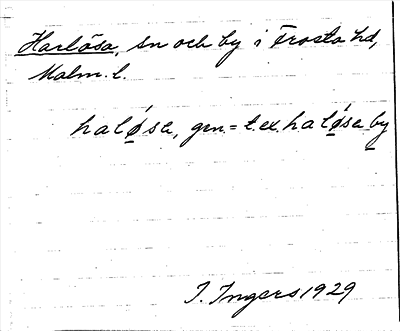 Harlösa, sn och by i Torsta hd,
Malm. l.
halǿse, gm. = t. ex. halǿse by
I. Ingers 1929